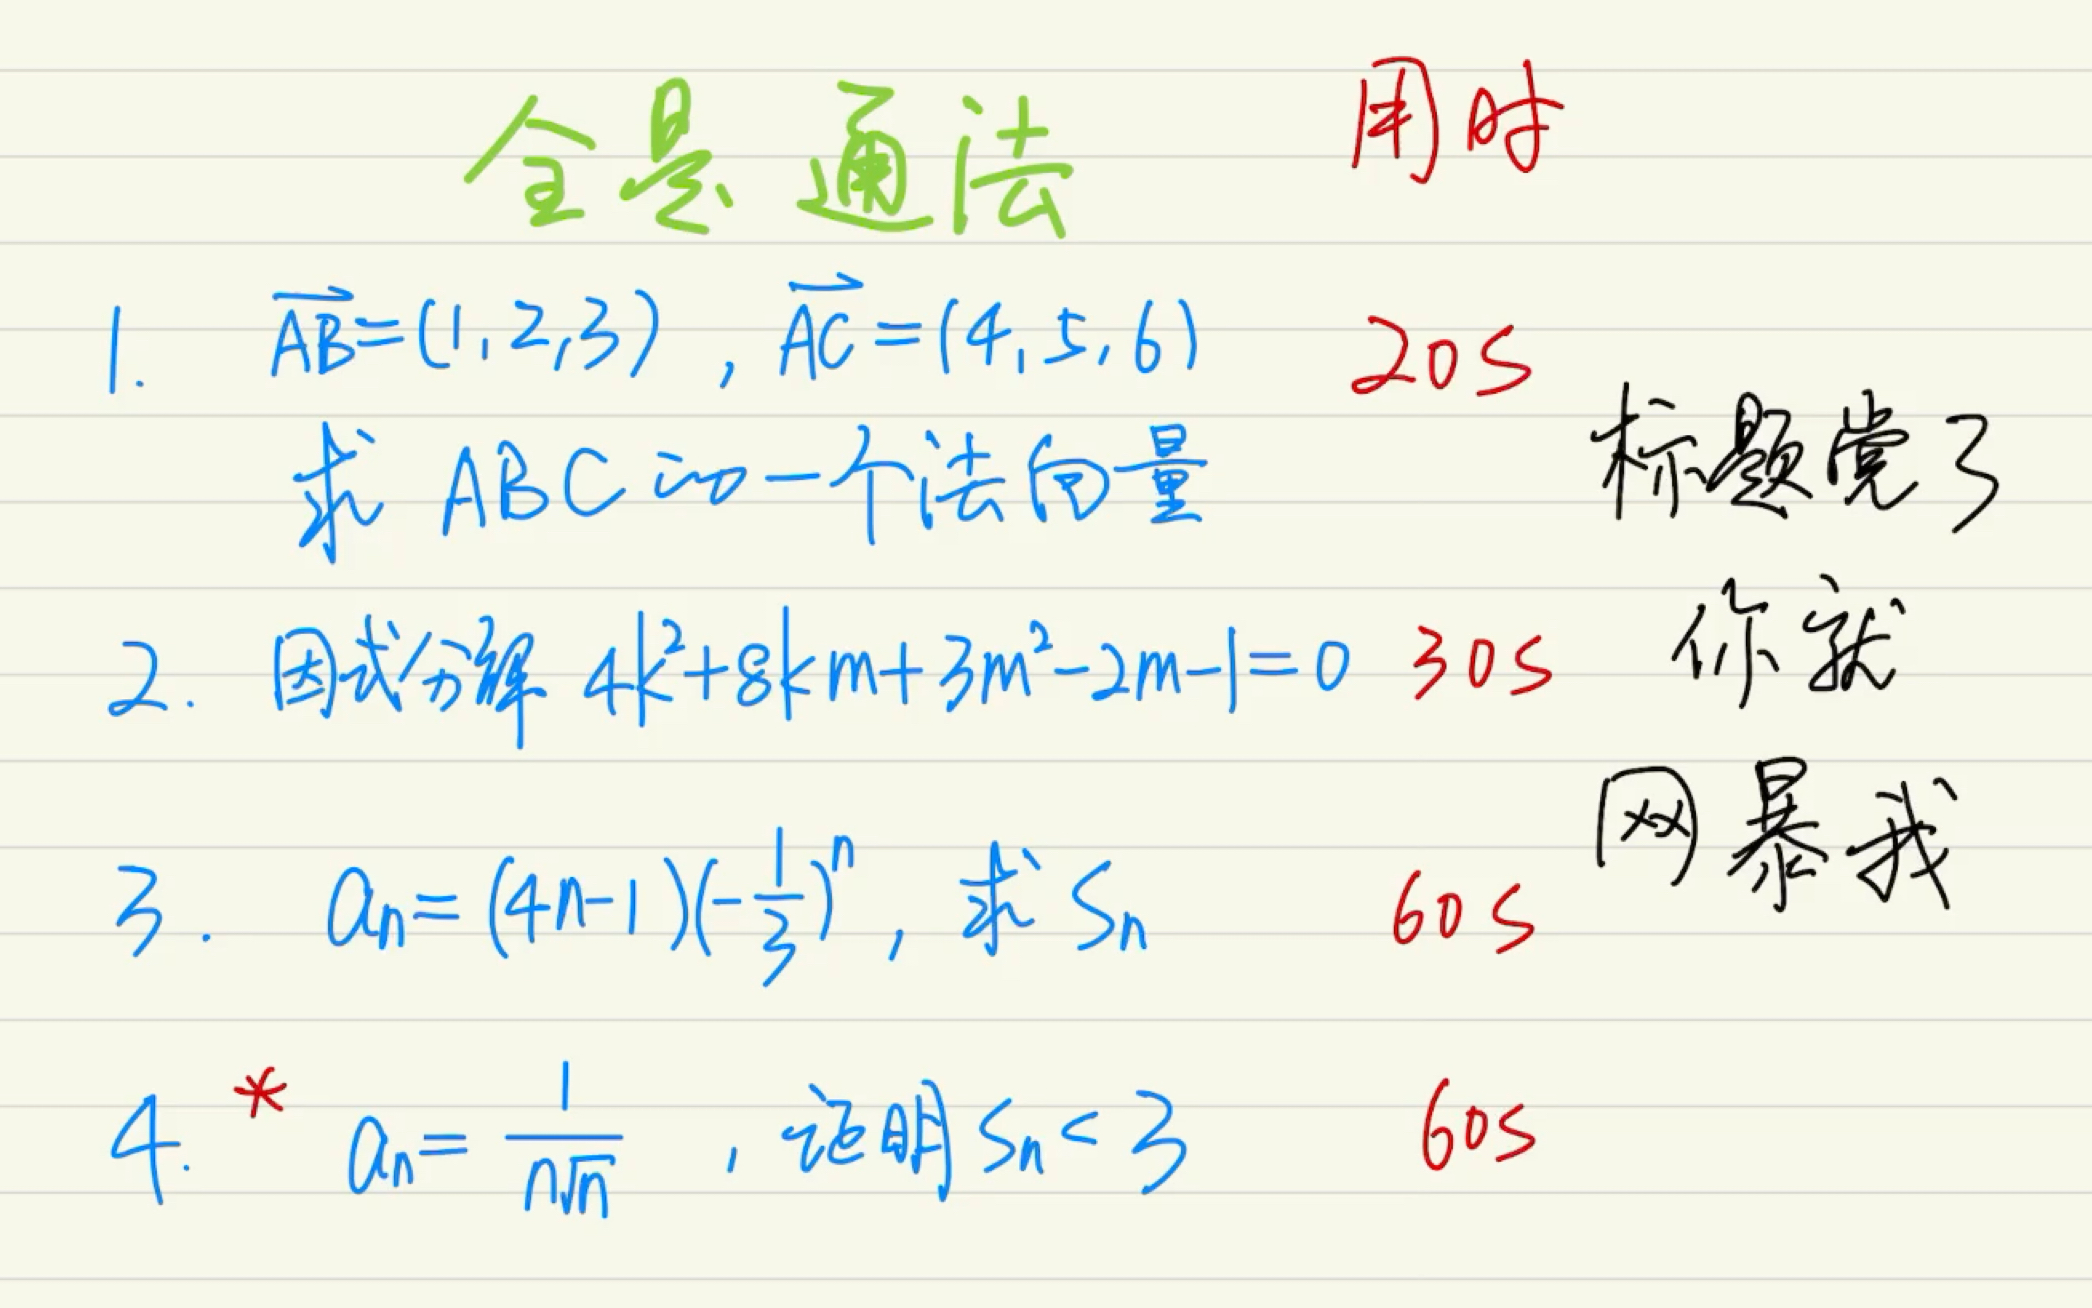 全是通法 用时
1. AB=(1,2,3), AC=(4,5,6) 20s
求 ABC 的一个法向量
标题党了
2. 因式分解 4k²+8km+3m²-2m-1=0 30s
你就
网暴我
3. aₙ=(4n-1)(-1/3)ⁿ, 求 Sₙ 60s
4. * aₙ=1/(n√n), 证明 Sₙ<3 60s